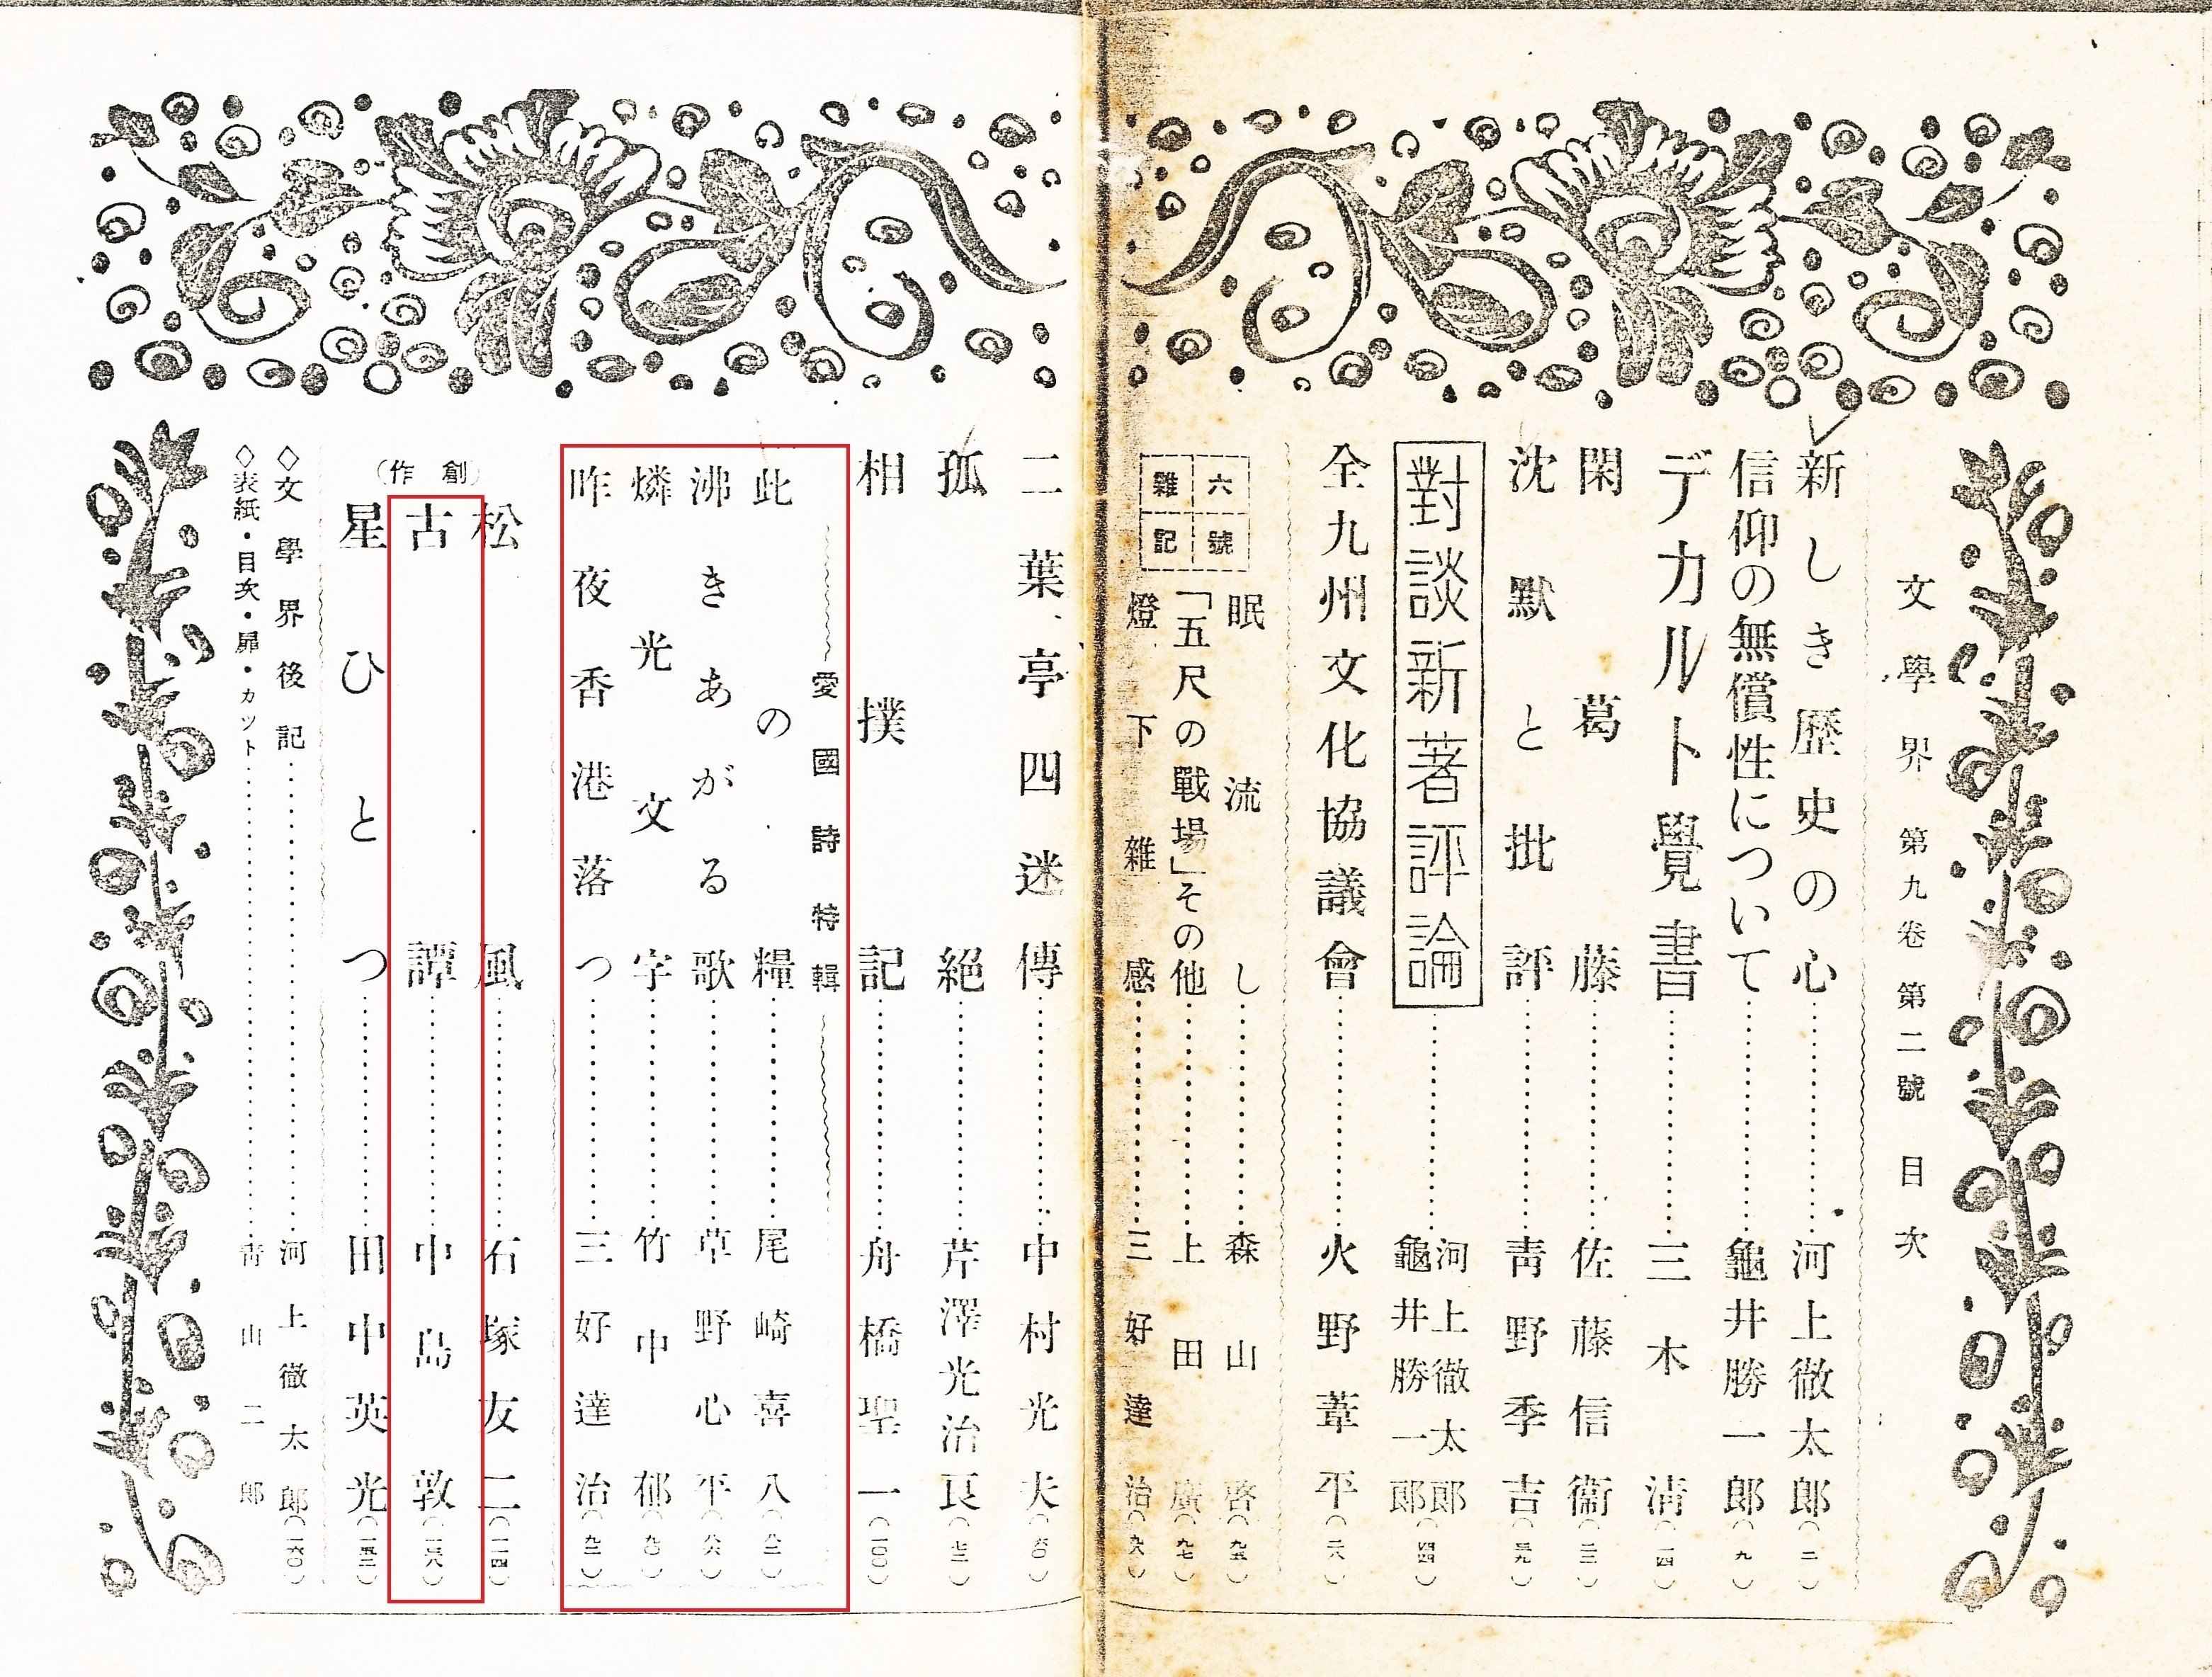 文學界 第九卷 第二號 目次
新しき歷史の心…………河上徹太郎(二)
信仰の無償性について…………龜井勝一郎(九)
デカルト覺書…………三木淸(一四)
閑葛藤…………佐藤信衞(二三)
沈默と批評…………靑野季吉(三九)
對談新著評論…………河上徹太郎 龜井勝一郎(四四)
全九州文化協議會…………火野葦平(二八)
六號雜記
眠流し…………森山啓(九五)
「五尺の戰場」その他…………上田廣(九七)
燈下雜感…………三好達治(九八)
二葉亭四迷傳…………中村光夫(六〇)
孤絕…………芹澤光治良(七二)
相撲記…………舟橋聖一(一〇〇)
愛國詩特輯
此の糧…………尾崎喜八(八二)
沸きあがる歌…………草野心平(八六)
燐光文字…………竹中郁(九〇)
昨夜香港落つ…………三好達治(九二)
(創作)
松風…………石塚友二(一一四)
古譚…………中島敦(一三八)
星ひとつ…………田中英光(一五二)
◇文學界後記…………河上徹太郎(一六〇)
◇表紙・目次・扉・カット…………靑山二郎